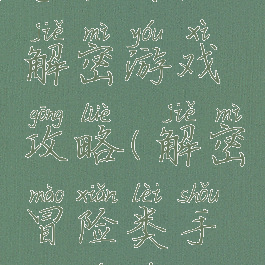 jiě mì yóu xì
解密游戏
gōng lüè jiě mì
攻略(解密
mào xiǎn lèi shǒu
冒险类手